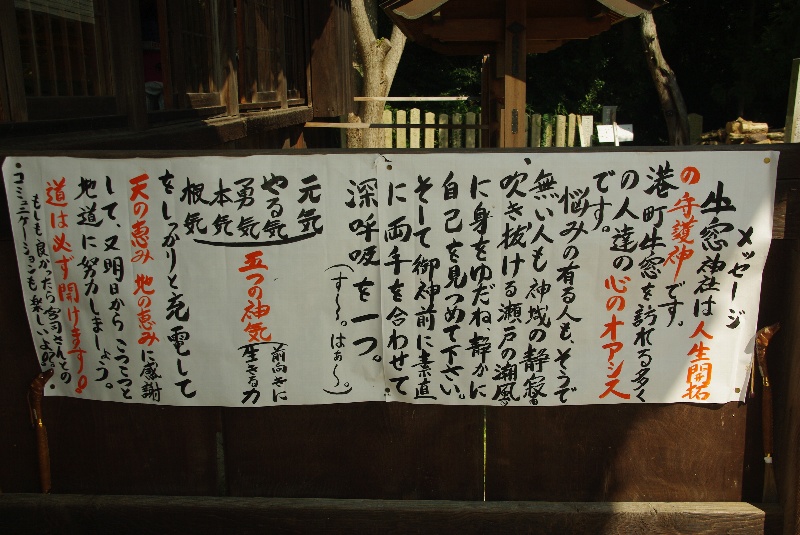 メッセージ
牛窓神社は人生開拓
の守護神です。
港町牛窓を訪れる多く
の人達の心のオアシス
です。
悩みの有る人も、そうで
無い人も神域の静寂と
吹き抜ける瀬戸の潮風
に身をゆだね、静かに
自己を見つめて下さい。
そして御神前に素直
に両手を合わせて
深呼吸を一つ。
(す〜〜。はぁ〜〜。)
元気
やる気
勇気
本気
根気
五つの神気
(前向きに
生きる力
をしっかりと充電して
天の恵み 地の恵みに感謝
して、又明日からこつこつと
地道に努力しましょう。
道は必ず開けます!
もしも良かったら宮司さんとの
コミュニケーションも楽しいよ!?